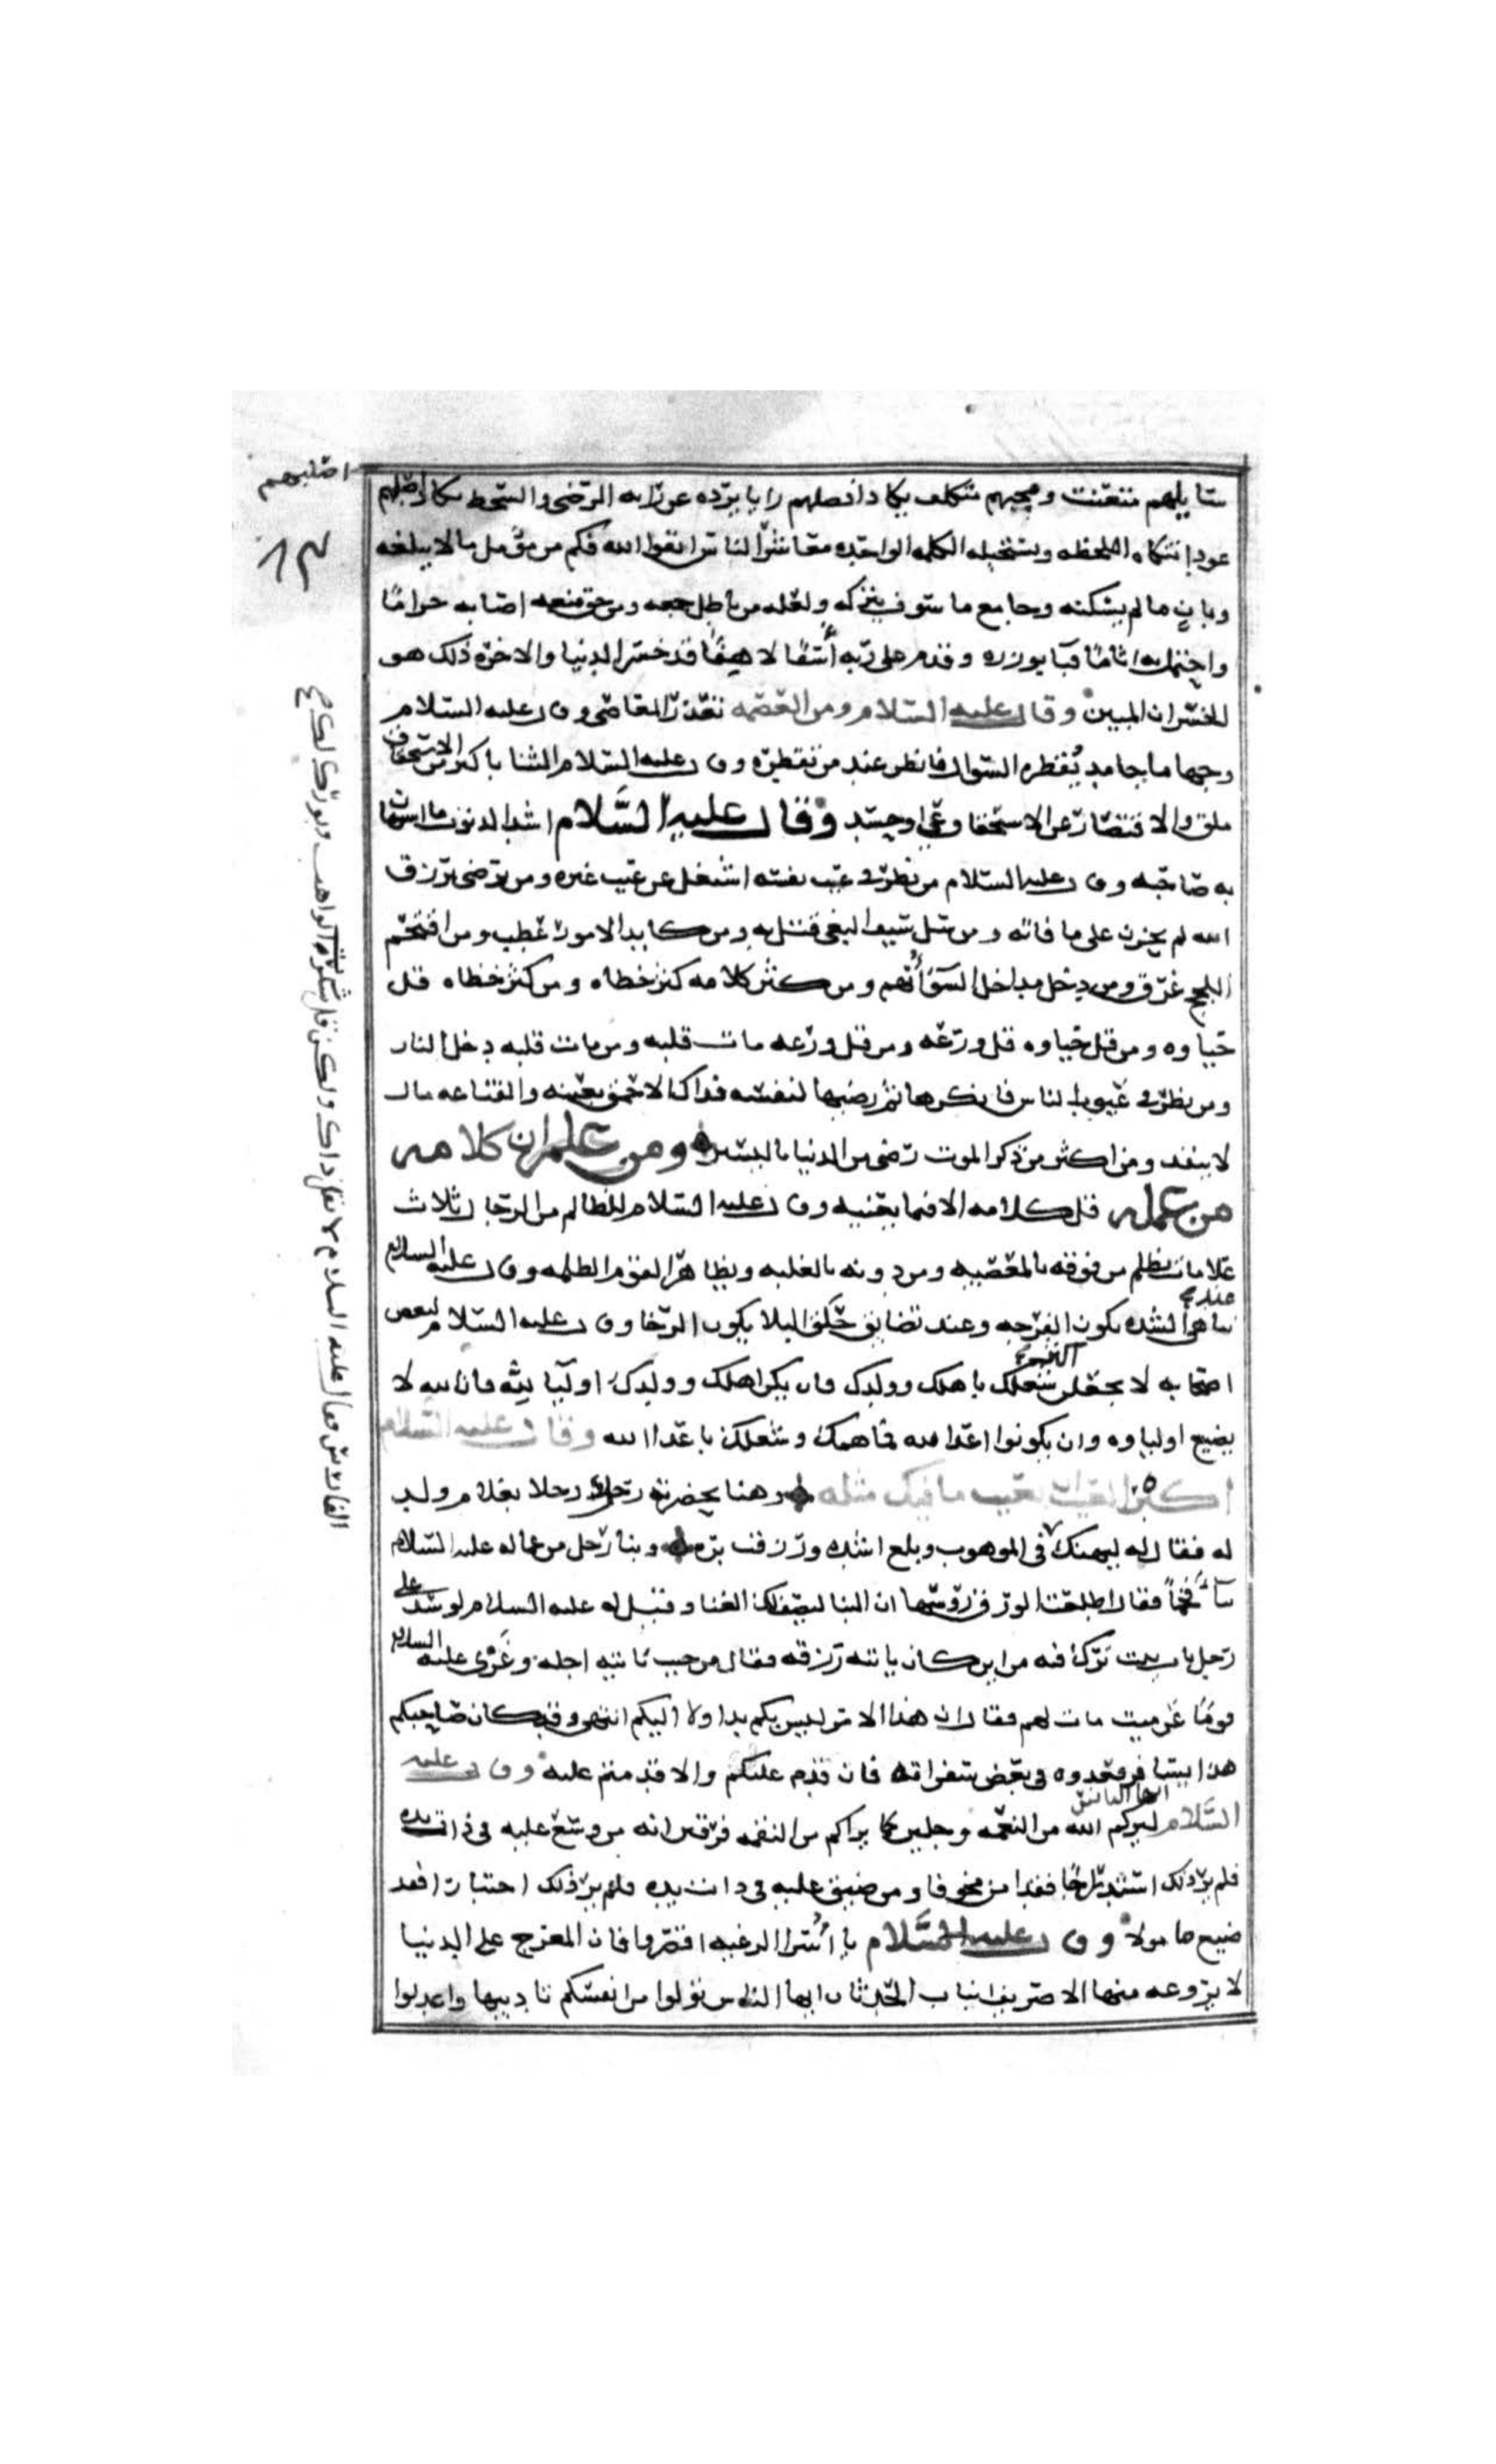 سايلهم متعنت ومجيبهم متكلف يكاد افضلهم رايا يرده عن رايه الرضى والسخط يكاد اصلبهم
عودا تنكاه اللحظه وتستحيله الكلمه الواحده معاشر الناس اتقوا الله فكم من مومل ما لا يبلغه
وبانٍ ما لم يسكنه وجامع ما سوف يتركه ولعله من باطل جمعه ومن حق منعه اصابه حرامًا
واحتمل به اثامًا فبا بوزره وقدم على ربه أسفًا لاهفًا قد خسر الدنيا والاخره ذلك هو
الخسران المبين وقال عليه السلام ومن العصمه تعذر المعاصى وقال عليه السلام
وجهك ما جامد يقطره السوال فانظر عند من تقطره وقال عليه السلام الثنا باكثر من الاستحقاق
ملق والا فتصار عن الاستحقاق عي او حسد وقال عليه السلام اشد الذنوب ما استهان
به صاحبه وقال عليه السلام من نظر في عيب نفسه اشتغل عن عيب غيره ومن رضى برزق
الله لم يحزن على ما فاته ومن سل سيف البغى قتل به ومن كابد الامور عطب ومن اقتحم
اللجج غرق ومن دخل مداخل السوء أتهم ومن كثر كلامه كثر خطاه ومن كثر خطاه قل
حياوه ومن قل حياوه قل ورعه ومن قل ورعه مات قلبه ومن مات قلبه دخل النار
ومن نظر في عيوب الناس فانكرها ثم رضيها لنفسه فذاك الاحمق بعينه والقناعه مال
لا ينفد ومن اكثر من ذكر الموت رضى من الدنيا باليسير ومن علم ان كلامه
من عمله قل كلامه الا فيما يعنيه وقال عليه السلام للظالم من الرجال ثلاث
علامات يظلم من فوقه بالمعصيه ومن دونه بالغلبه ويظاهر القوم الظلمه وقال عليه السلام
عند تناهى الشده تكون الفرجه وعند تضايق حلق البلا يكون الرخا وقال عليه السلام لبعض
اصحابه لا تجعلن اكثر شغلك باهلك وولدك فان يكن اهلك وولدك اوليا لله فان الله لا
يضيع اولياوه وان يكونوا اعدا لله فما همك وشغلك باعدا الله وقال عليه السلام
اكبر العيب ان تعيب ما فيك مثله وهنا بحضرته رجل رجلا بغلام ولد
له فقال له ليهنك في الموهوب وبلغ اشده ورزقت بره وبنا رجل من عماله عليه السلام
بنأ فخماً فقال اطلعت الورق رؤسها ان البنا ليصف لك الغنا وقيل له عليه السلام لو سد على
رجل باب بيت تُرك فيه من اين كان ياتيه رزقه فقال من حيث ياتيه اجله وعزى عليه السلام
قومًا عن ميت مات لهم فقال ان هذا الامر ليس بكم بدا ولا اليكم انتهى وقد كان صاحبكم
هذا يسافر فعدوه في بعض سفراته فان قدم عليكم والا قدمتم عليه وقال عليه
السلام ايها الناس ليركم الله من النعمه وجلين كما يراكم من النقمه فرقين انه من وسع عليه في ذات يده
فلم ير ذلك استدراجًا فقد امن مخوفا ومن ضيق عليه في ذات يده فلم ير ذلك اختبارا فقد
ضيع مامولا وقال عليه السلام يا أسرا الرغبه اقصروا فان المعرج على الدنيا
لا يروعه منها الا صريف انياب الحدثان ايها الناس تولوا من انفسكم تاديبها واعدلوا
اصلبهم
٨٣
الفارس وقال عليه السلام لا تقل ذلك ولكن قل شكرت الواهب وبورك لك